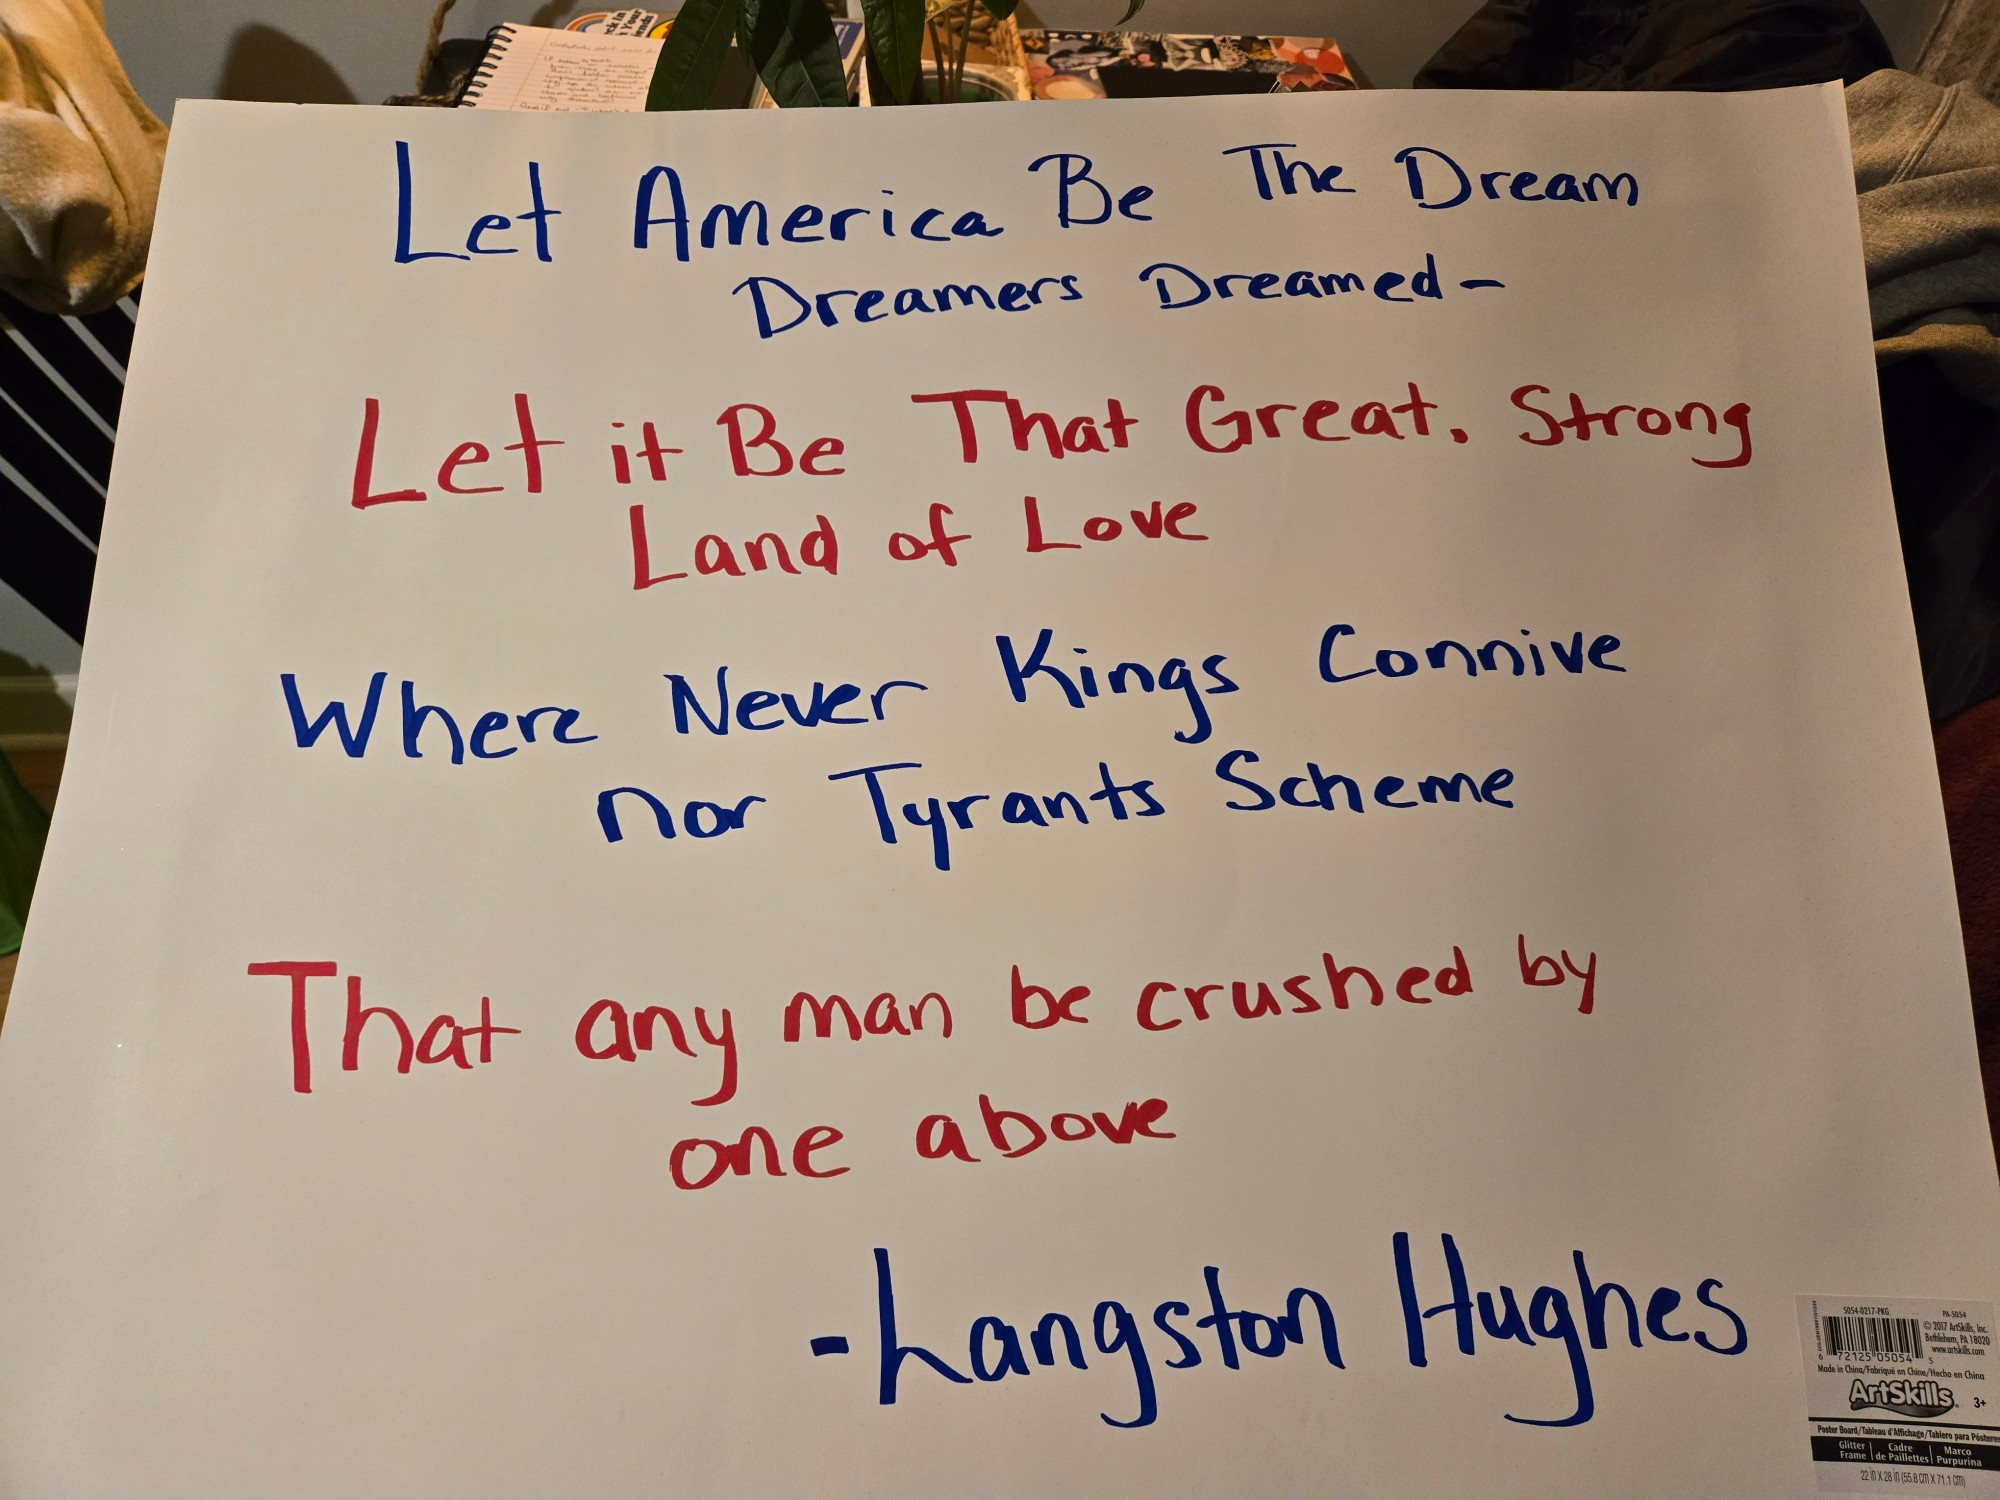 Let America Be The Dream
Dreamers Dreamed-
Let it Be That Great. Strong
Land of Love
Where Never Kings Connive
nor Tyrants Scheme
That any man be crushed by
one above
-Langston Hughes
5054-0217-PKG PA-5054
© 2017 ArtSkills, Inc.
Bethlehem, PA 18020
www.artskills.com
6 72125 05054 5
Made in China/Fabriqué en Chine/Hecho en China
ArtSkills. 3+
Poster Board/Tableau d'Affichage/Tablero para Pósteres
Glitter Frame | Cadre de Paillettes | Marco Purpurina
22 in X 28 in (55.8 cm X 71.1 cm)